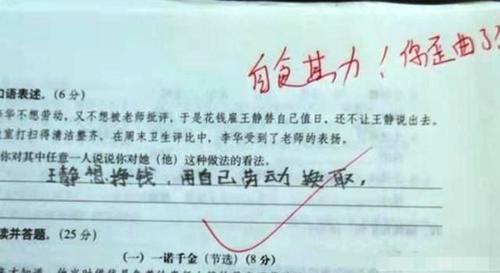 自食其力！你歪曲了
口语表述。(6 分)
华不想劳动，又不想被老师批评，于是花钱雇王静替自己值日，还不让王静说出去。
室打扫得清洁整齐，在周末卫生评比中，李华受到了老师的表扬。
你对其中任意一人说说你对她（他）这种做法的看法。
王静想挣钱，用自己劳动换取，
读并答题。(25 分)
(一) 一诺千金(节选) (8 分)